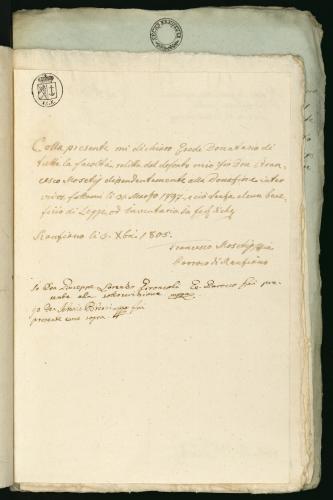 Colla presente mi dichiaro Erede Donatario di
tutta la facoltà relitta dal defonto mio Zio Don Fran-
cesco Moschij dipendentemente alla Donazione inter
vivos fattami li 30 Marzo 1797, e ciò senza alcun bene-
ficio di Legge, od inventario. In fede
Ranfiano li 3. Xbre 1805.
Francesco Moschij
Parroco di Ranfiano
Io Don Giuseppe Lorenzo Ex-Parroco fui pre-
sente alla sottoscrizione
Io fui
presente come sopra